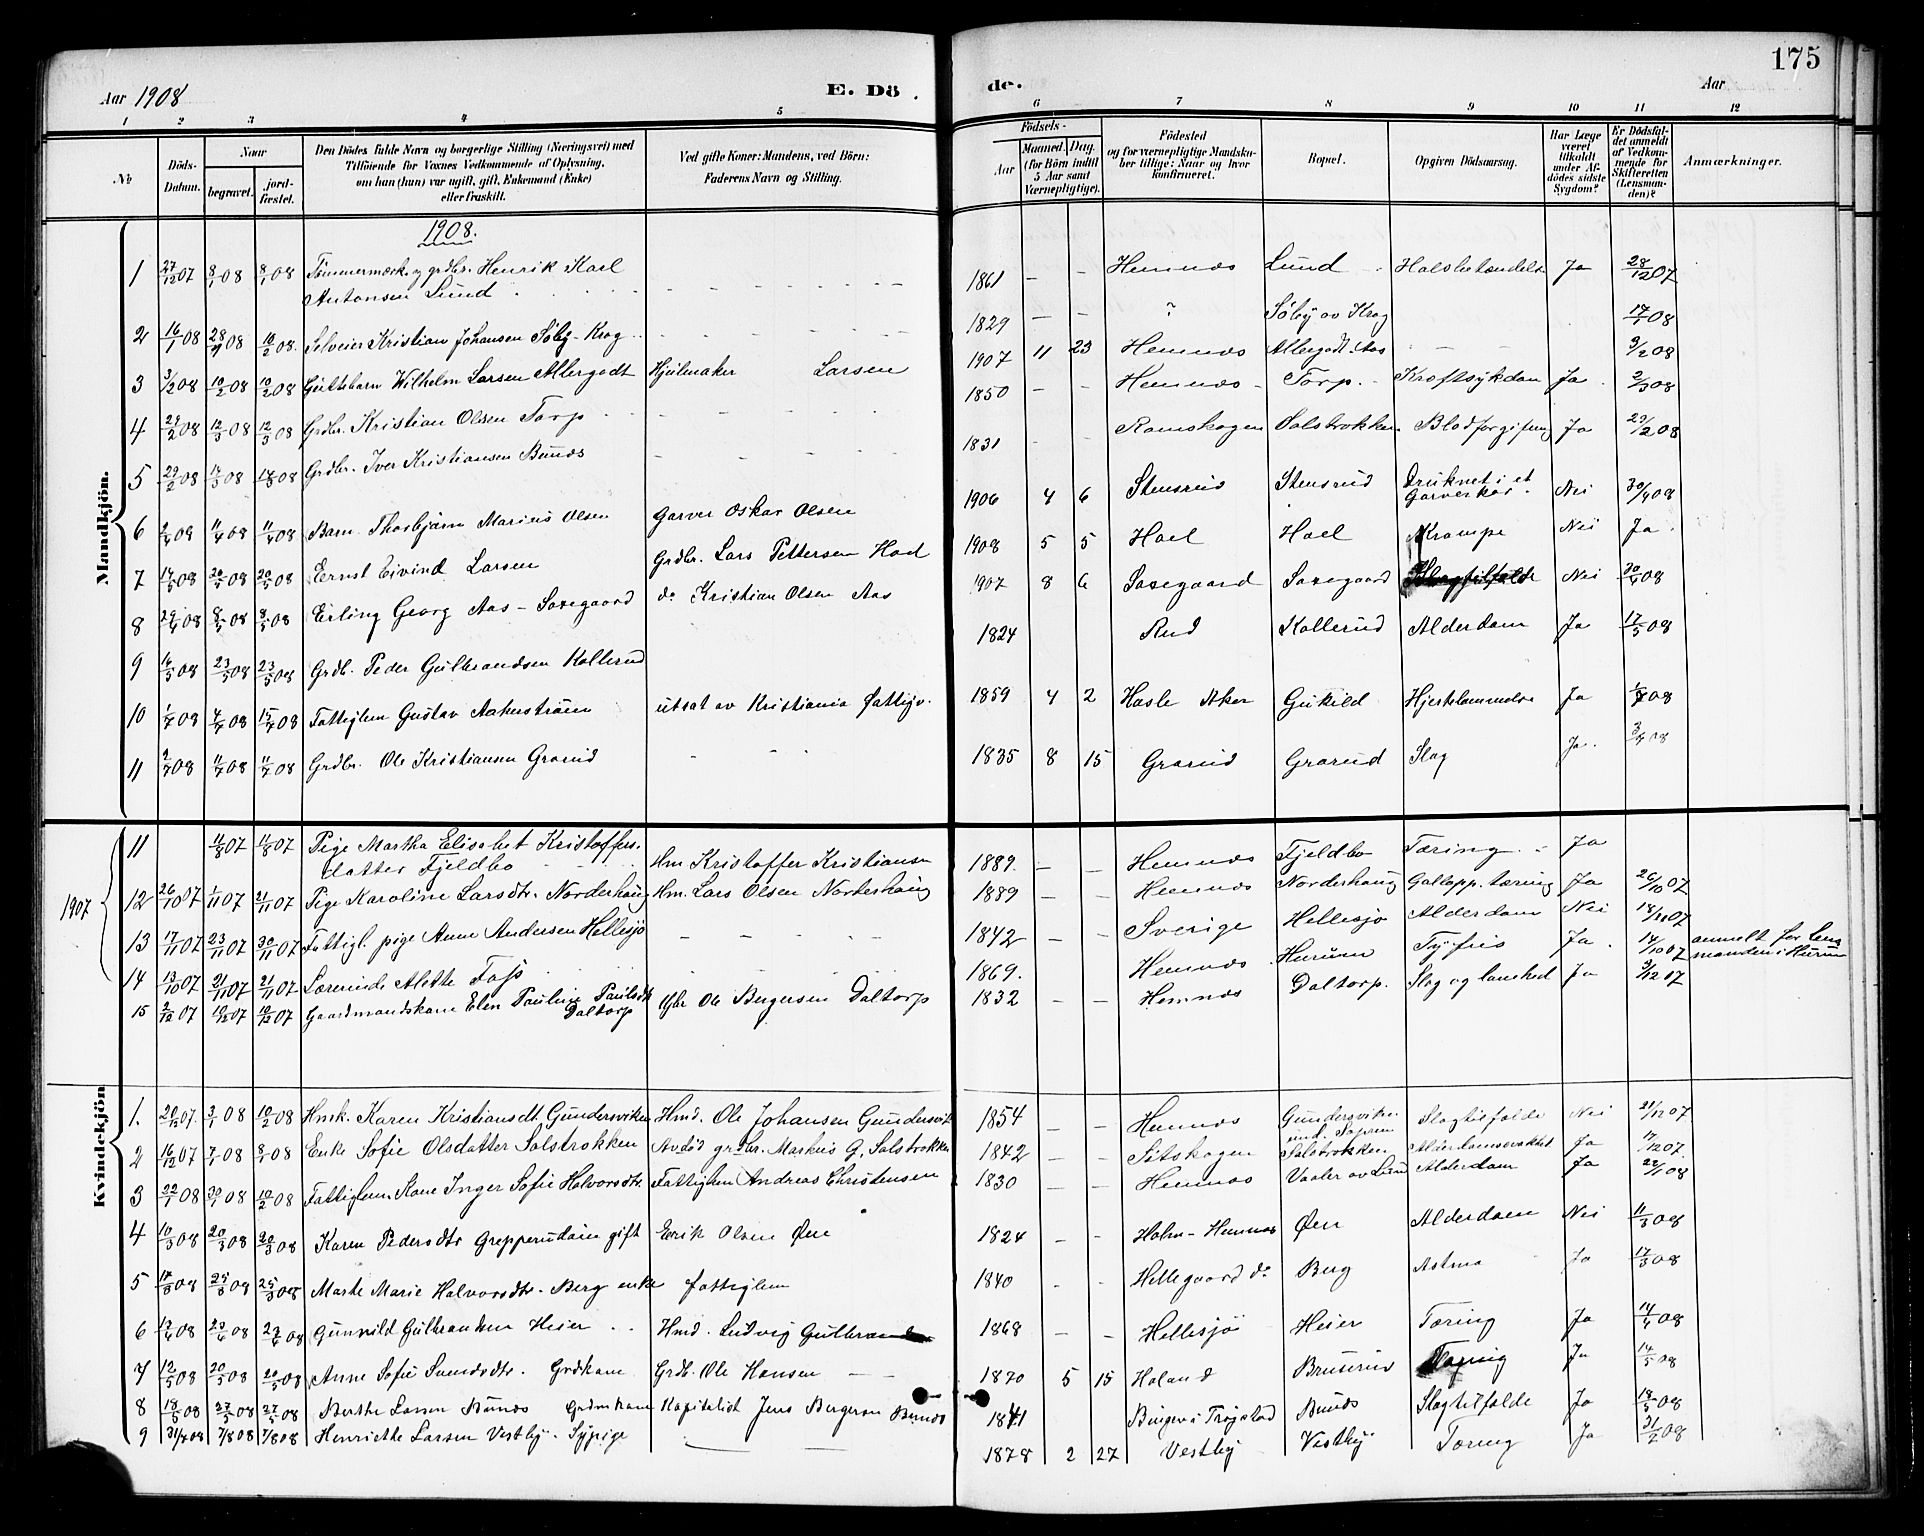 Aar 1908
E. Dö
de.
175
Aar
1 2 3 4 5 6 7 8 9 10 11 12
No
Döds-Datum.
Naar
begravet.
jord-fæstet.
Den Dödes fulde Navn og borgerlige Stilling (Næringsvei) med
Tilföiende for Voxnes Vedkommende af Oplysning,
om han (hun) var ugift, gift, Enkemand (Enke)
eller fraskilt.
Ved gifte Koner: Mandens, ved Börn:
Faderens Navn og Stilling.
Födsels-
Aar
Maaned. Dag.
(for Börn indtil
5 Aar samt
Værnepligtige).
Födested
og for værnepligtige Mandska-
ber tillige: Naar og hvor
konfirmeret.
Bopæl.
Opgiven Dödsaarsag.
Har Læge
været
tilkaldt
under Af-
dödes sidste
Sygdom?
Er Dödsfal-
det anmeldt
af Vedkom-
mende for
Skifteretten
(Lensman-
den)?
Anmærkninger.
Mandkjön.
1908.
1 27/12 07 8/1 08 8/1 08 Tömmermærk. og grdbr. Henrik Karl
Antonsen Lund 1861 Hemnæs Lund Halsbetændelse Ja 28/12 07
2 16/1 08 28/1 08 16/2 08 Selveier Kristian Johansen Söby-Krog 1829 ? Söby av Krog 17/1 08
3 3/2 08 10/2 08 10/2 08 Guttebarn Wilhelm Larsen Allergodt Hjulmaker Larsen 1907 11 23 Hemnæs Allergodt-Aas 3/2 08
4 29/2 08 12/3 08 12/3 08 Grdbr. Kristian Olsen Torp 1850 Hemnæs Torp Kræftsykdom Ja 2/3 08
5 29/2 08 17/3 08 17/3 08 Grdbr. Iver Kristiansen Bunæs 1831 Romskogen Salstrokken Blodforgiftning Ja 29/2 08
6 2/4 08 11/4 08 11/4 08 Barn Thorbjörn Marius Olsen Garver Oskar Olsen 1906 4 6 Stensrud Stensrud Druknet i et
Garverkar. Nei 30/4 08
7 14/5 08 20/5 08 20/5 08 Ernst Eivind Larsen Grdbr. Lars Pettersen Hoel 1908 5 5 Hoel Hoel Krampe Nei Ja.
8 29/4 08 8/5 08 8/5 08 Erling Georg Aas - Saxegaard do Kristian Olsen Aas 1907 8 6 Saxegaard Saxegaard Slagtilfælde Nei 30/4 08
9 14/5 08 23/5 08 23/5 08 Grdb. Peder Gulbrandsen Kollerud 1824 Rud Kollerud Alderdom Ja 17/5 08
10 1/7 08 4/7 08 15/7 08 Fattiglem Gustav Aakerström utsat av Kristiania Fattigv. 1859 4 2 Hasle Aker Gukild Hjertelammelse Ja 1/7 08
11 2/7 08 11/7 08 11/7 08 Grdbr. Ole Kristiansen Grorud 1835 8 15 Grorud Grorud Slag Ja. 3/7 08
1907
11 11/8 07 11/8 07 Pige Martha Elisabet Kristoffers-
datter Fjeldbo Hm Kristoffer Kristiansen 1889 Hemnæs Fjeldbo Tæring Ja
12 26/10 07 1/11 07 21/11 07 Pige Karoline Larsdtr. Norderhaug Hm. Lars Olsen Norderhaug 1889 Hemnæs Norderhaug Gallopp. tæring Ja 26/10 07
13 17/11 07 23/11 07 30/11 07 Fattigl. pige Anne Andersen Hellesjö 1842 Sverige Hellesjö Alderdom Nei 18/11 07
14 13/10 07 21/11 07 21/11 07 Lærerinde Alette Foss 1869. Hemnæs Hurum Tyfus Ja 14/10 07 anmelt for lens
manden i Hurum
15 2/12 07 10/12 07 10/12 07 Gaardmandskone Elen Pauline Paulsdtr.
Daltorp Gbr Ole Bergersen Daltorp 1832 Hemnæs Daltorp. Slag og lamhed Ja 3/12 07
Kvindekjön
1. 20/12 07. 3/1 08 10/2 08 Hmk. Karen Kristiansdt. Gundersviken Hmd. Ole Johansen Gundersvik 1854 Hemnæs Gundersviken
und. Soprum Slagtilfælde Nei 21/12 07
2 16/12 07 7/1 08 8/1 08 Enke Sofie Olsdatter Salstrokken Avdöd grdbr. Markus G. Salstrokken 1842 Setskogen Salstrokken Alderdomssvakhet Ja 17/12 07.
3 22/1 08 30/1 08 10/2 08 Fattiglem. Kone Inger Sofie Halvorsdtr. Fattiglem Andreas Christensen 1830 Hemnæs Vaaler av Lund Alderdom Ja 22/1 08
4 10/3 08 20/3 08 20/3 08 Karen Pedersdtr Grepperudøien gift Erik Olsen Øen 1824 Holm-Hemnæs Øen Alderdom Nei 11/3 08
5 17/3 08 25/3 08 25/3 08 Marte Marie Halvorsdtr. Berg enke fattiglem 1840 Hellegaard do Berg Astma Ja 17/3 08
6 13/4 08 23/4 08 23/4 08 Gunvild Gulbrandsen Heier Hmd. Ludvig Gulbrandsen 1868 Hellesjö Heier Tæring Ja 14/4 08
7 12/5 08 20/5 08 20/5 08 Anne Sofie Svendsdtr. Grdkone Grdb. Ole Hansen 1870 5 15 Haland Bruserud Tæring Ja 14/5 08
8 18/5 08 27/5 08 27/5 08 Berthe Larsen Bunæs Grdmkone Kapitalist Jens Bergersen Bunæs 1841 Bingen i Trøgstad Bunæs Slagtilfælde Ja 18/5 08
9 31/7 08 7/8 08 7/8 08 Henriette Larsen Vestby. Sypige 1878 2 27 Vestby Vestby Tæring Ja 31/7 08